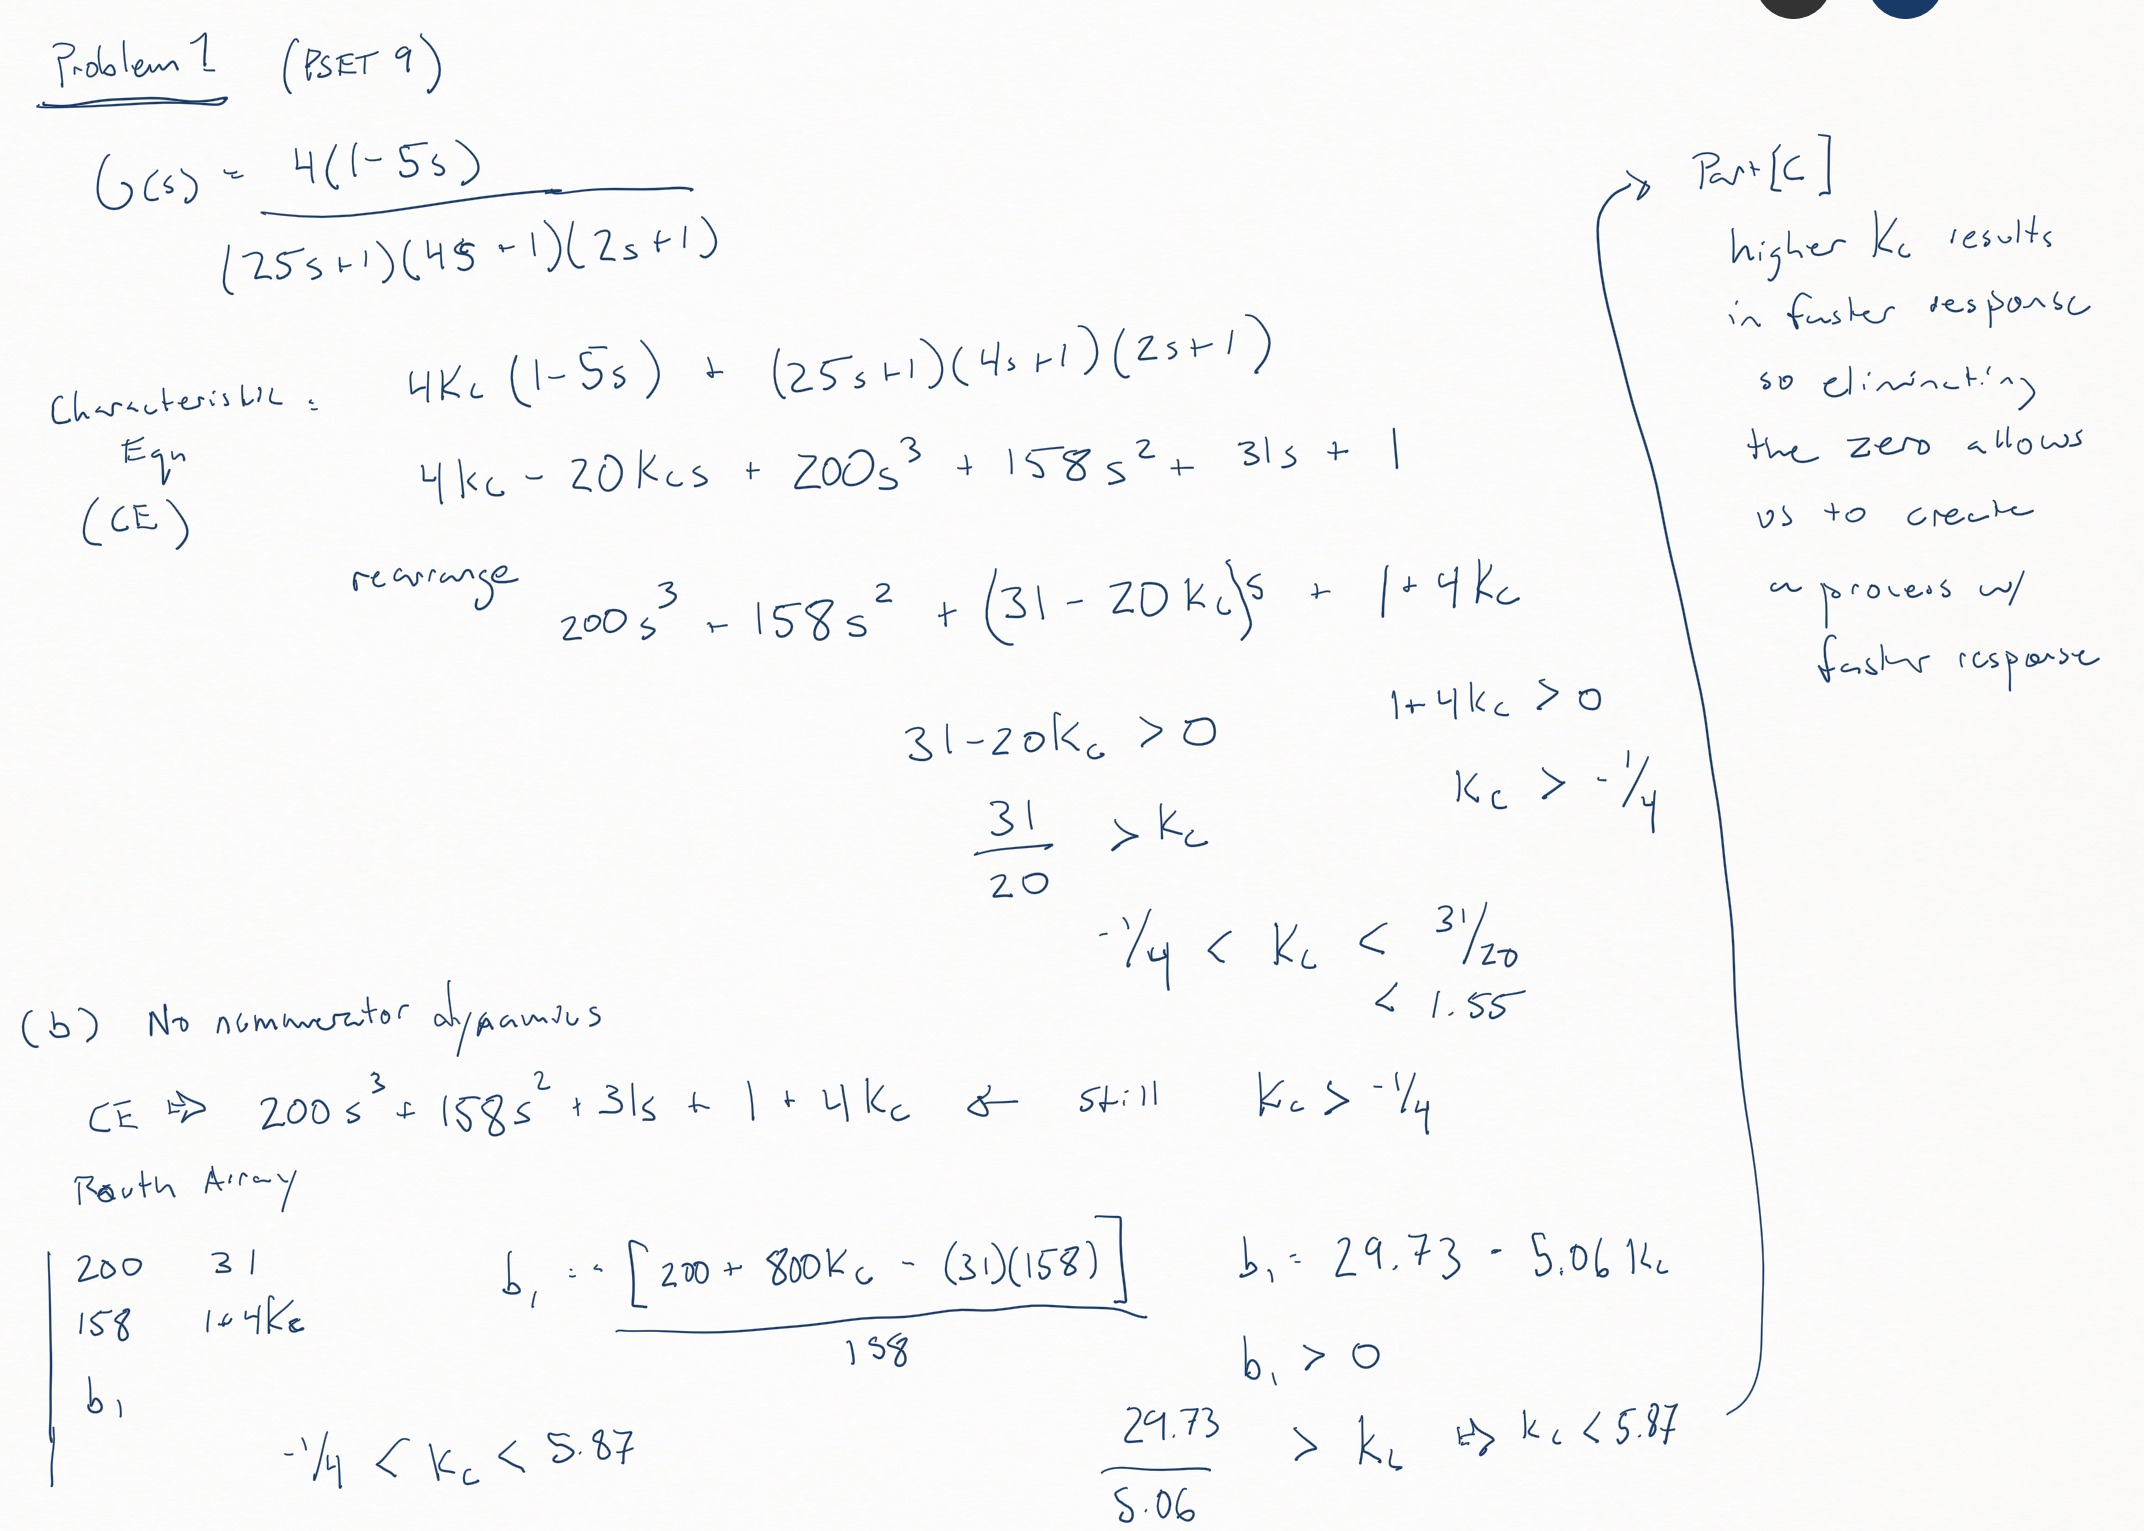 Problem 1 (PSET 9)
G(s) = 4(1-5s) / (25s+1)(4s+1)(2s+1)
Characteristic Eqn (CE) : 4Kc (1-5s) + (25s+1)(4s+1)(2s+1)
4Kc - 20Kcs + 200s³ + 158s² + 31s + 1
rearrange 200s³ + 158s² + (31 - 20Kc)s + 1+4Kc
31-20Kc > 0
31/20 > Kc
1+4Kc > 0
Kc > -1/4
-1/4 < Kc < 31/20
< 1.55
(b) No nummerator dynamics
CE ⇒ 200s³ + 158s² + 31s + 1 + 4Kc ← still Kc > -1/4
Routh Array
200 31
158 1+4Kc
b₁
b₁ = -[200 + 800Kc - (31)(158)] / 158
b₁ = 29.73 - 5.06 Kc
b₁ > 0
29.73 / 5.06 > Kc ⇒ Kc < 5.87
-1/4 < Kc < 5.87
Part [C]
higher Kc results
in faster response
so eliminating
the zero allows
us to create
a process w/
faster response